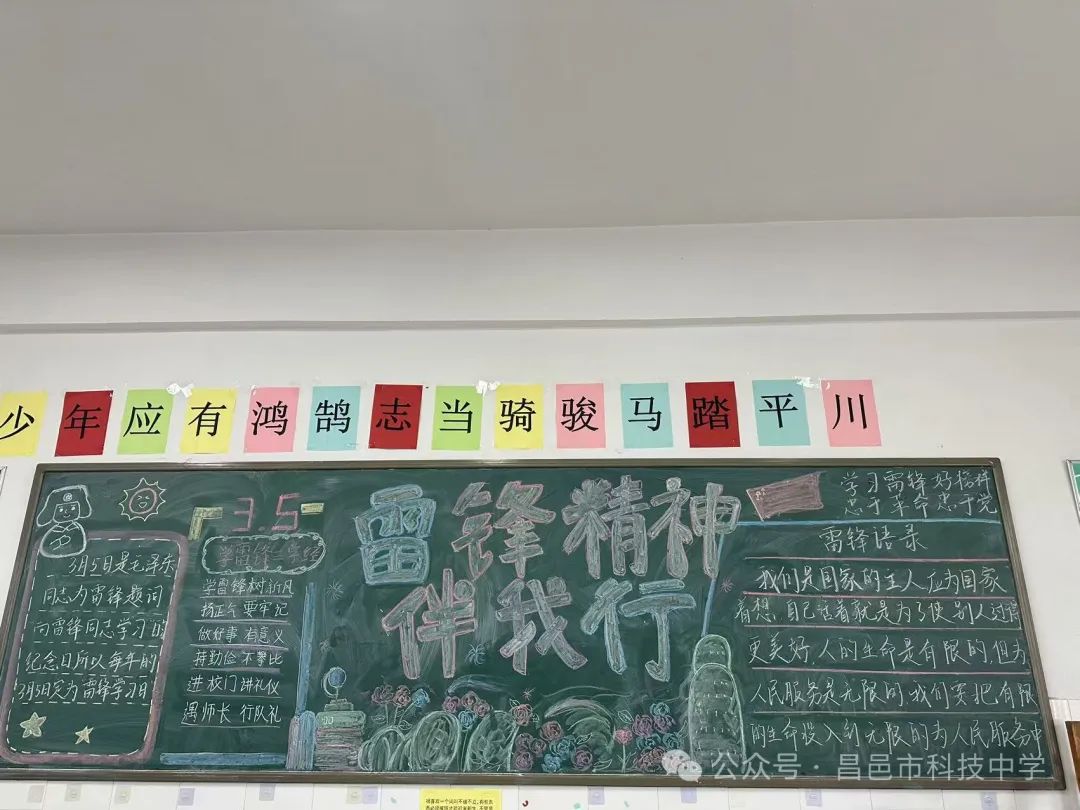 少年应有鸿鹄志当骑骏马踏平川
3月5日是毛泽东
同志为雷锋题词
向雷锋同志学习的
纪念日所以每年的
3月5日定为雷锋学习日
3.5
学雷锋三字经
学雷锋 树新风
扬正气 要牢记
做好事 有意义
持勤俭 不攀比
进校门 讲礼仪
遇师长 行队礼
雷锋精神
伴我行
学习雷锋 好榜样
忠于革命 忠于党
雷锋语录
我们是国家的主人应为国家
着想.自己活着就是为了使别人过得
更美好.人的生命是有限的,但为
人民服务是无限的,我们要把有限
的生命投入到无限的为人民服务中
公众号·昌邑市科技中学